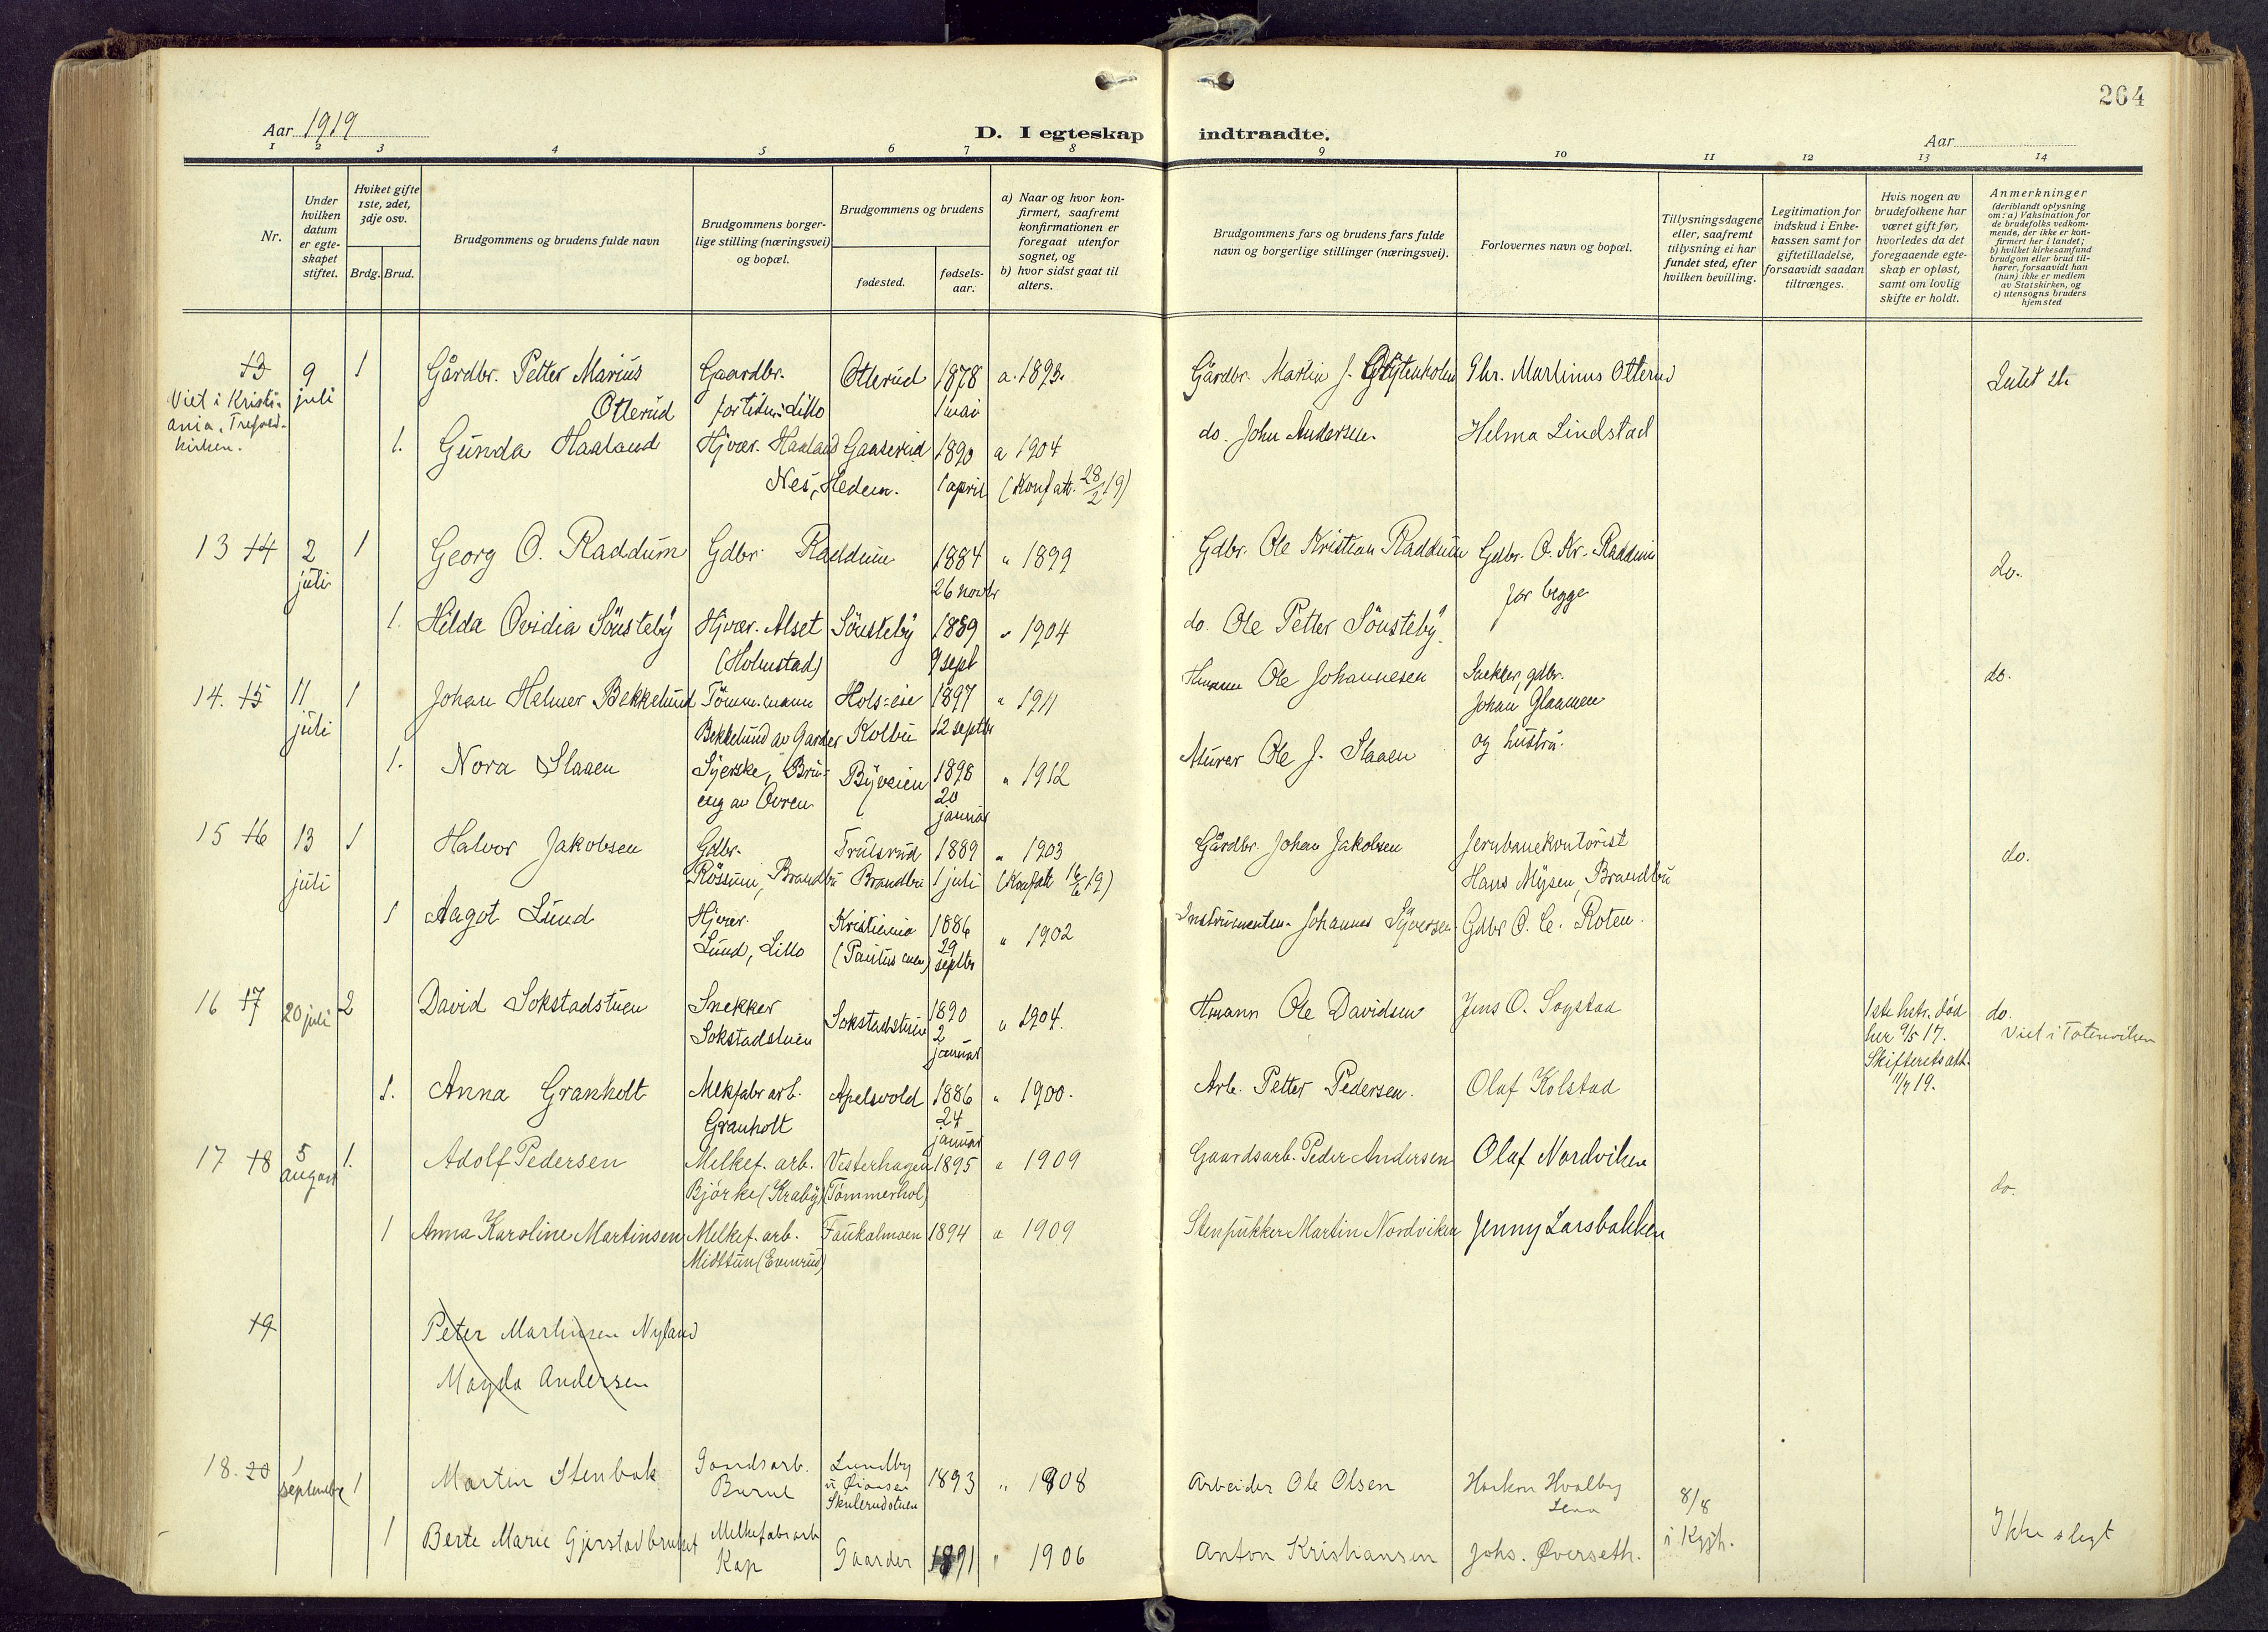 264
Aar 1919
D. I egteskap indtraadte.
Aar
1 2 3 4 5 6 7 8 9 10 11 12 13 14
Nr.
Under hvilken datum er egte-skapet stiftet.
Hviket gifte 1ste, 2det, 3dje osv.
Brdg. Brud.
Brudgommens og brudens fulde navn
Brudgommens borger-lige stilling (næringsvei) og bopæl.
Brudgommens og brudens
fødested.
fødsels-aar.
a) Naar og hvor kon-firmert, saafremt konfirmationen er foregaat utenfor sognet, og
b) hvor sidst gaat til alters.
Brudgommens fars og brudens fars fulde navn og borgerlige stillinger (næringsvei).
Forlovernes navn og bopæl.
Tillysningsdagene eller, saafremt tillysning ei har fundet sted, efter hvilken bevilling.
Legitimation for indskud i Enke-kassen samt for giftetilladelse, forsaavidt saadan tiltrænges.
Hvis nogen av brudefolkene har været gift før, hvorledes da det foregaaende egte-skap er opløst, samt om lovlig skifte er holdt.
Anmerkninger
(deriblandt oplysning om: a) Vaksination for de brudefolks vedkom-mende, der ikke er kon-firmert her i landet; b) hvilket kirkesamfund brudgom eller brud til-hører, forsaavidt han (hun) ikke er medlem av Statskirken, og c) utensogns bruders hjemsted
13 9 1 Gårdbr. Petter Marius Gaardbr. Otterud 1878 a. 1893. Gårdbr. Martin J. Glytenholm Ghr. Martinus Otterud
Viet i Kristi- juli Otterud for tiden: Lillo 1 mai
ania, Trefold-
kirken. 1. Gunda Haaland Hjvær. Haaland Gaaserud 1890 a 1904 do. John Andersen. Helma Lindstad
Nes, Hedem. 1 april (Konf att. 28/2 19)
13 14 2 1 Georg O. Raddum Gdbr. Raddum 1884 " 1899 Gdbr. Ole Kristian Raddum Gdbr. O. Kr. Raddum do.
juli 26 novbr for begge
1. Hilda Ovidia Sönsteby Hjvær. Alset Sönsteby 1889 " 1904 do. Ole Petter Sönsteby.
(Holmstad) 9 sept
14. 15 11 1 Johan Helmer Bekkelund Tömm.mann Hols=eie 1897 " 1911 Hmann Ole Johannesen Snekker, gdbr. do.
juli Bekkelund av Garder Kolbu 12 septbr Johan Glaamen
1. Nora Slaaen Syerske, Bru- Byveien 1898 " 1912 Murer Ole J. Slaaen og hustru.
eng av Ovren 20 januar
15 16 13 1 Halvor Jakobsen Gdbr. Trulsrud 1889 " 1903 Gårdbr. Johan Jakobsen Jernbanekontorist do.
juli Røssum, Brandbu Brandbu 1 juli (Konfatt 16/6 19) Hans Mysen, Brandbu
1 Aagot Lund Hjvær. Kristiania 1886 " 1902 Instrumentm. Johannes Syversen Gdbr O. C. Roten.
Lund, Lillo (Paulus men.) 29 septbr
16 17 20 juli 2 David Sokstadstuen Snekker Sokstadstuen 1890 " 1904. Hmann Ole Davidsen Jens O. Sogstad 1ste hstr. död do.
Sokstadstuen 2 januar her 9/5 17. Viet i Totenviken
Skifteretsatt.
11/7 19.
1. Anna Granholt Mekfabr arb. Apelsvold 1886 " 1900. Arb. Petter Pedersen. Olaf Kolstad
Granholt 24 januar
17 18 5 1. Adolf Pedersen Melkef. arb. Vesterhagen 1895 " 1909 Gaardsarb. Peder Andersen Olaf Nordviken
august Bjórke (Kraby) (Tömmerhol) do.
1 Anna Karoline Martinsen Melkef. arb. Faukalmoen 1894 a 1909 Stenpukker Martin Nordviken Jenny Larsbakken
Midtsun (Evenrud)
19 Peter Martinsen Nyland
Magda Andersen
18. 20 1 1 Martin Stenbak Gaardsarb. Lundby 1893 " 1908 Arbeider Ole Olsen Haakon Hvalby 8/8
september Burul Skulerudstuen Lena i Kggh.
1 Berte Marie Gjerstadbruket Melkefabrarb Gaarder 1891 " 1906 Anton Kristiansen Johs. Øverseth. Ikke slegt
Kap